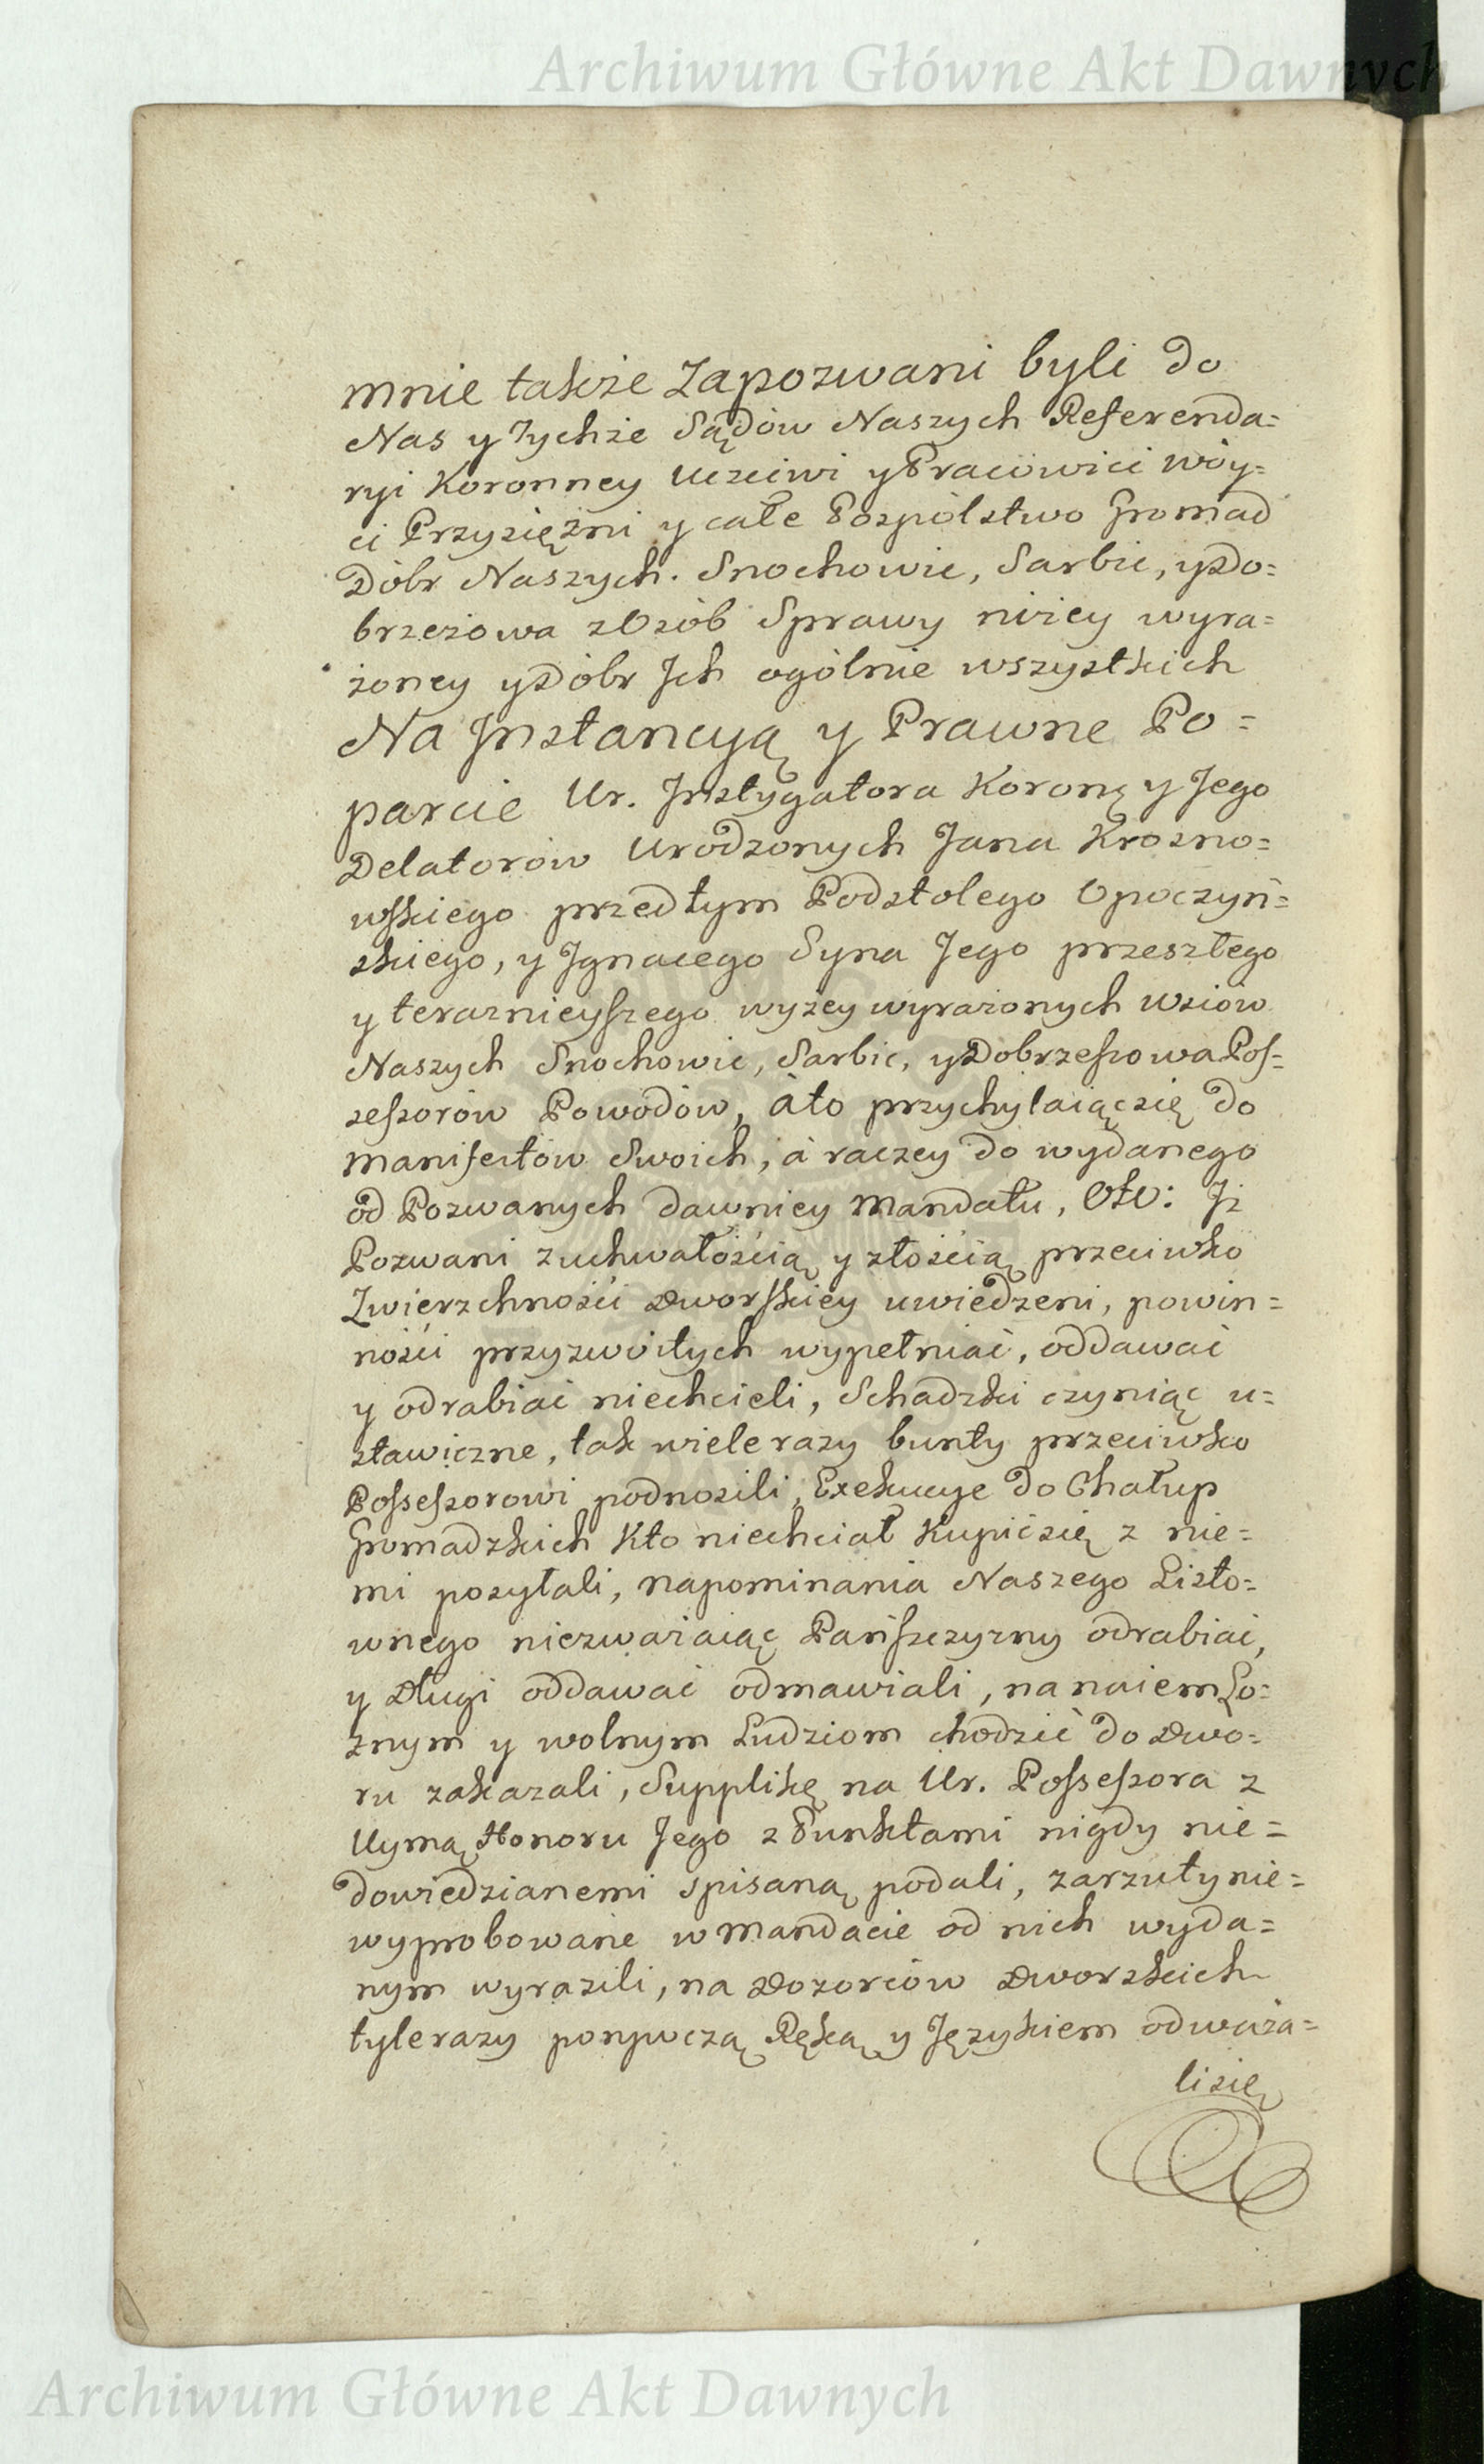 Archiwum Główne Akt Dawnych
mnie także Zapozwani byli do
Nas y Tychże Sądów Naszych Referenda=
ryi Koronney Uczciwi y Pracowici Wóy=
ci Przysiężni y całe Pospólstwo Gromad
Dóbr Naszych. Snochowic, Sarbic, y Do=
brzeżowa z Osób Sprawy niżey wyra=
żoney y Dóbr Jch ogólnie wszystkich
Na Jnstancyą y Prawne Po=
parcie Ur. Jnstygatora Koronę y Jego
Delatorow Urodzonych Jana Krosno=
wskiego przedtym Podstolego Opoczyń=
skiego, y Jgnacego Syna Jego przeszłego
y teraznieyszego wyzey wyrażonych Wsiów
Naszych Snochowic, Sarbic, y Dobrzeszowa Pos=
sessorów Powodów, àto przychylaiącsię do
Manifestów Swoich, à raczey do wydanego
od Pozwanych dawniey Mandatu, Oto: Jż
Pozwani zuchwałością y złością przeciwko
Zwierzchności Dworskiey uwiedzeni, powin=
ności przyzwoitych wypełniać, oddawać
y odrabiać niechcieli, Schadzki czyniąc u=
stawiczne, tak wiele razy bunty przeciwko
Possessorowi podnosili, Exekucye do Chałup
Gromadzkich Kto niechciał Kupićsię z nie=
mi posyłali, napominania Naszego Listo=
wnego niezważaiąc Pańszczyzny odrabiać,
y Długi oddawać odmawiali, na naiem Lo=
znym y wolnym Ludziom chodzić do Dwo=
ru zakazali, Supplikę na Ur. Possessora z
Uymą Honoru Jego z Punktami nigdy nie=
dowiedzianemi spisaną podali, zarzuty nie=
wyprobowane w Mandacie od nich wyda=
nym wyrazili, na Dozorców Dworskich
tyle razy porywczą Ręką y Językiem odważa=
li się
Archiwum Główne Akt Dawnych